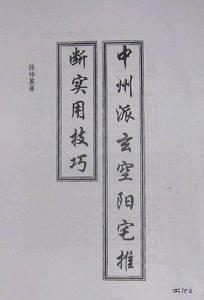 中州派玄空阳宅推
断实用技巧
陈仲易著